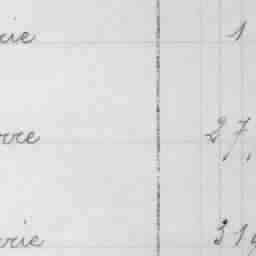 rie 1
rre 27,
rie 319